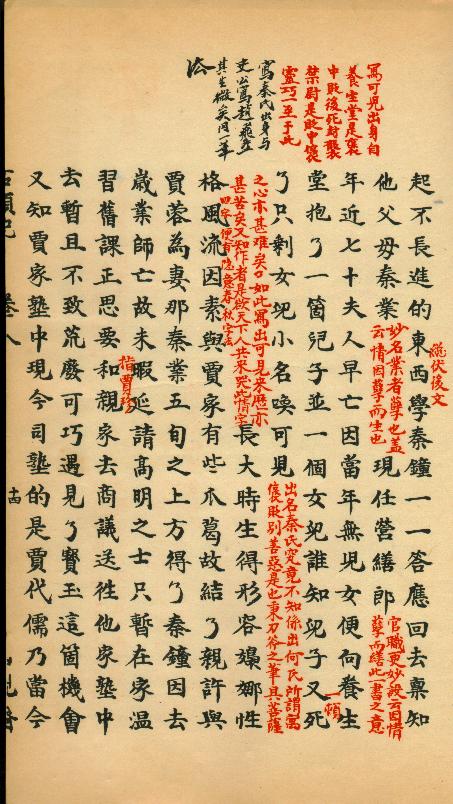 寫可兒出身自
養生堂是褒
中貶後死封龍
禁尉是貶中褒
靈巧一至于此
寫秦氏出身与
其生微矣同一筆
法
起不長進的東西學秦鐘一一答應回去稟知
總伏後文
他父母秦業
妙名業者孽也蓋
云情因孽而生也
現任營繕郎
官職更妙設云因情
孽而繕此一書之意
年近七十夫人早亡因當年無兒女便向養生
一頓
堂抱了一箇兒子並一個女兒誰知兒子又死
了只剩女兒小名喚可兒
出名秦氏究竟不知係出何氏所謂寓
褒貶別善惡是也秉刀斧之筆具菩薩
之心亦甚难矣如此寫出可見來歷亦
甚苦矣又知作者是欲天下人共來哭此情字
長大時生得形容嬝娜性
四字便有隱意春秋字法
格風流因素與賈家有些爪葛故結了親許與
賈蓉為妻那秦業五旬之上方得了秦鐘因去
歲業師亡故未暇延請高明之士只暫在家温
習舊課正思要和親家去商議送徃他家塾中
指賈珍
去暫且不致荒廢可巧遇見了寶玉這箇機會
又知賈家塾中現今司塾的是賈代儒乃當今